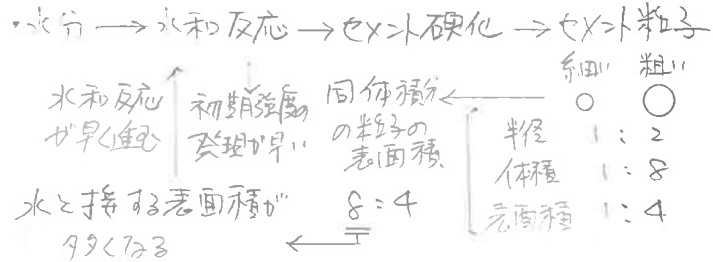 ・水分→水和反応→セメント硬化→セメント粒子
細い 粗い
水和反応
が早く進む
初期強度の
発現が早い
同体積分
の粒子の
表面積
半径 1:2
体積 1:8
表面積 1:4
水と接する表面積が
多くなる
8:4